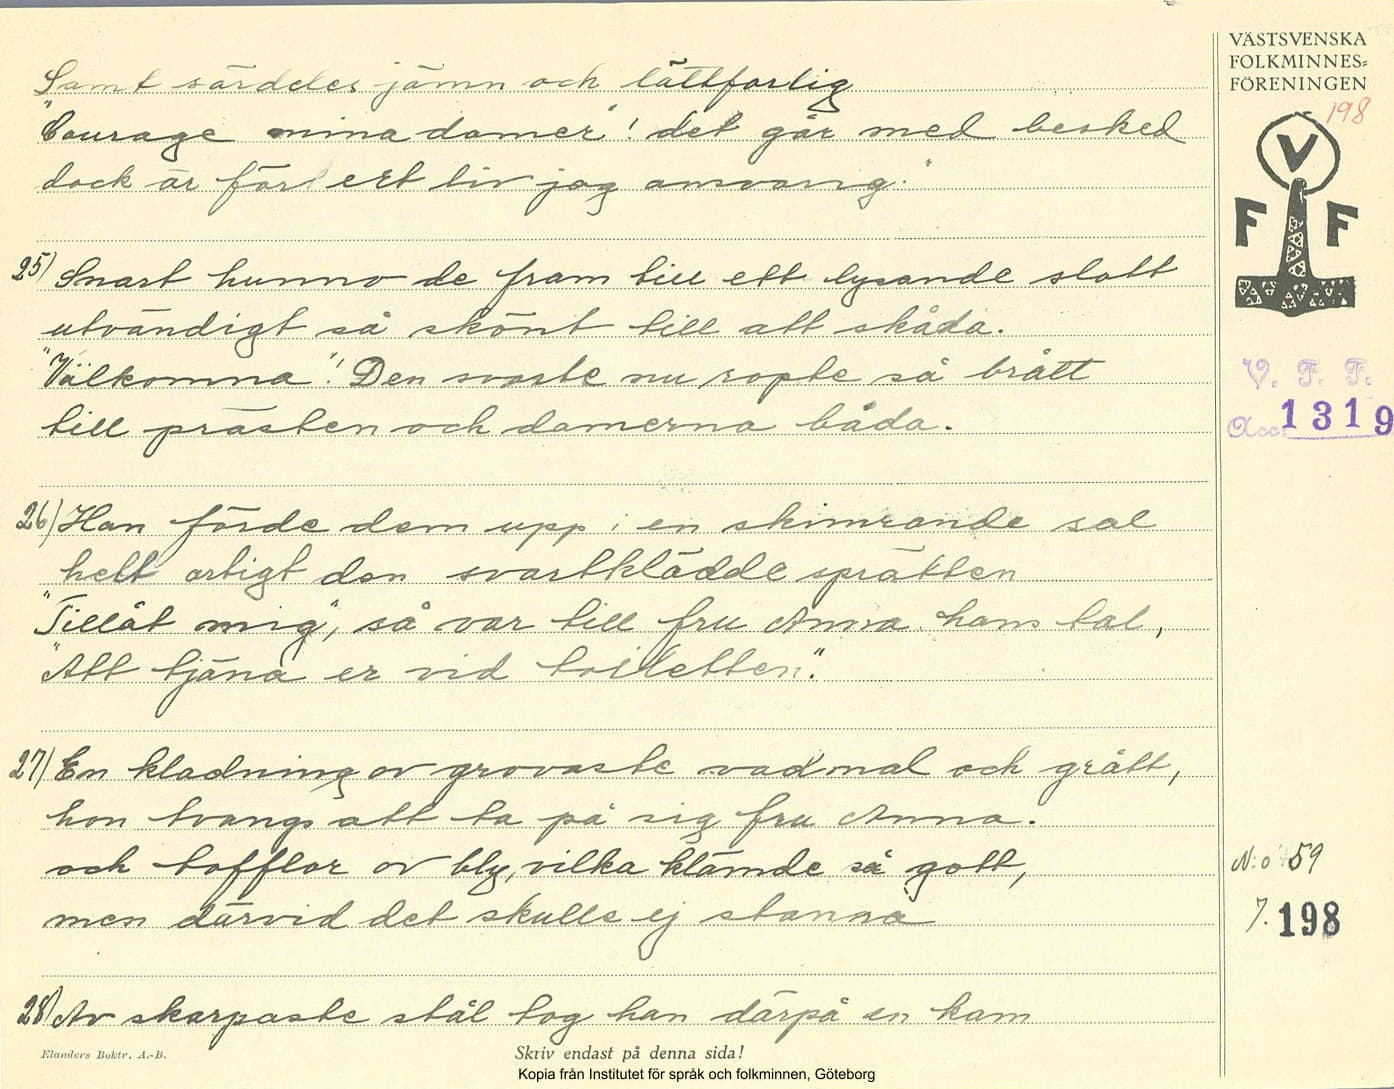 Samt särdeles jämn och lättfarlig
"Courage mina damer"! det går med besked
dock är för ert liv jag ansvarig."
25) Snart hunno de fram till ett lysande slott
utvändigt så skönt till att skåda.
"Välkomna"! Den svarte nu ropte så brått
till prästen och damerna båda.
26) Han förde dem upp i en skimrande sal
helt artigt den svartklädde sprätten
"Tillåt mig", så var till fru Anna hans tal,
"Att tjäna er vid toiletten".
27) En kladning av grovaste vadmal och grått,
hon tvangs att ta på sig fru Anna.
och tofflor av bly, vilka klämde så gott,
men därvid det skulle ej stanna
28) Av skarpaste stål tog han därpå en kam
Elanders Boktr. A.-B.
Skriv endast på denna sida!
Kopia från Institutet för språk och folkminnen, Göteborg
VÄSTSVENSKA
FOLKMINNES=
FÖRENINGEN
198
V
F F
V. F. F.
Acc. 1319
N:o 59
7. 198